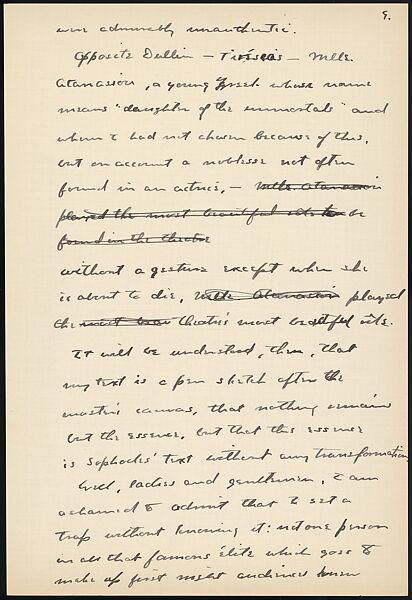 9.
were admirably unauthentic.
Opposite Dullin — Tirésias — Mlle.
Atanasiou, a young Greek whose name
means "daughter of the immortals" and
whom I had not chosen because of this,
but on account a noblesse not often
found in an actress, — Mlle. Atanasiou
played the most beautiful role to be
found in the theatre
without a gesture except when she
is about to die, Mlle Atanasiou played
the most beau theatre's most beautiful role.
It will be understood, then, that
my text is a pen sketch after the
master's canvas, that nothing remains
but the essence, but that this essence
is Sophocles' text without any transformation
Well, ladies and gentlemen, I am
ashamed to admit that I set a
trap without knowing it: not one person
in all that famous élite which goes to
make up first night audiences knew